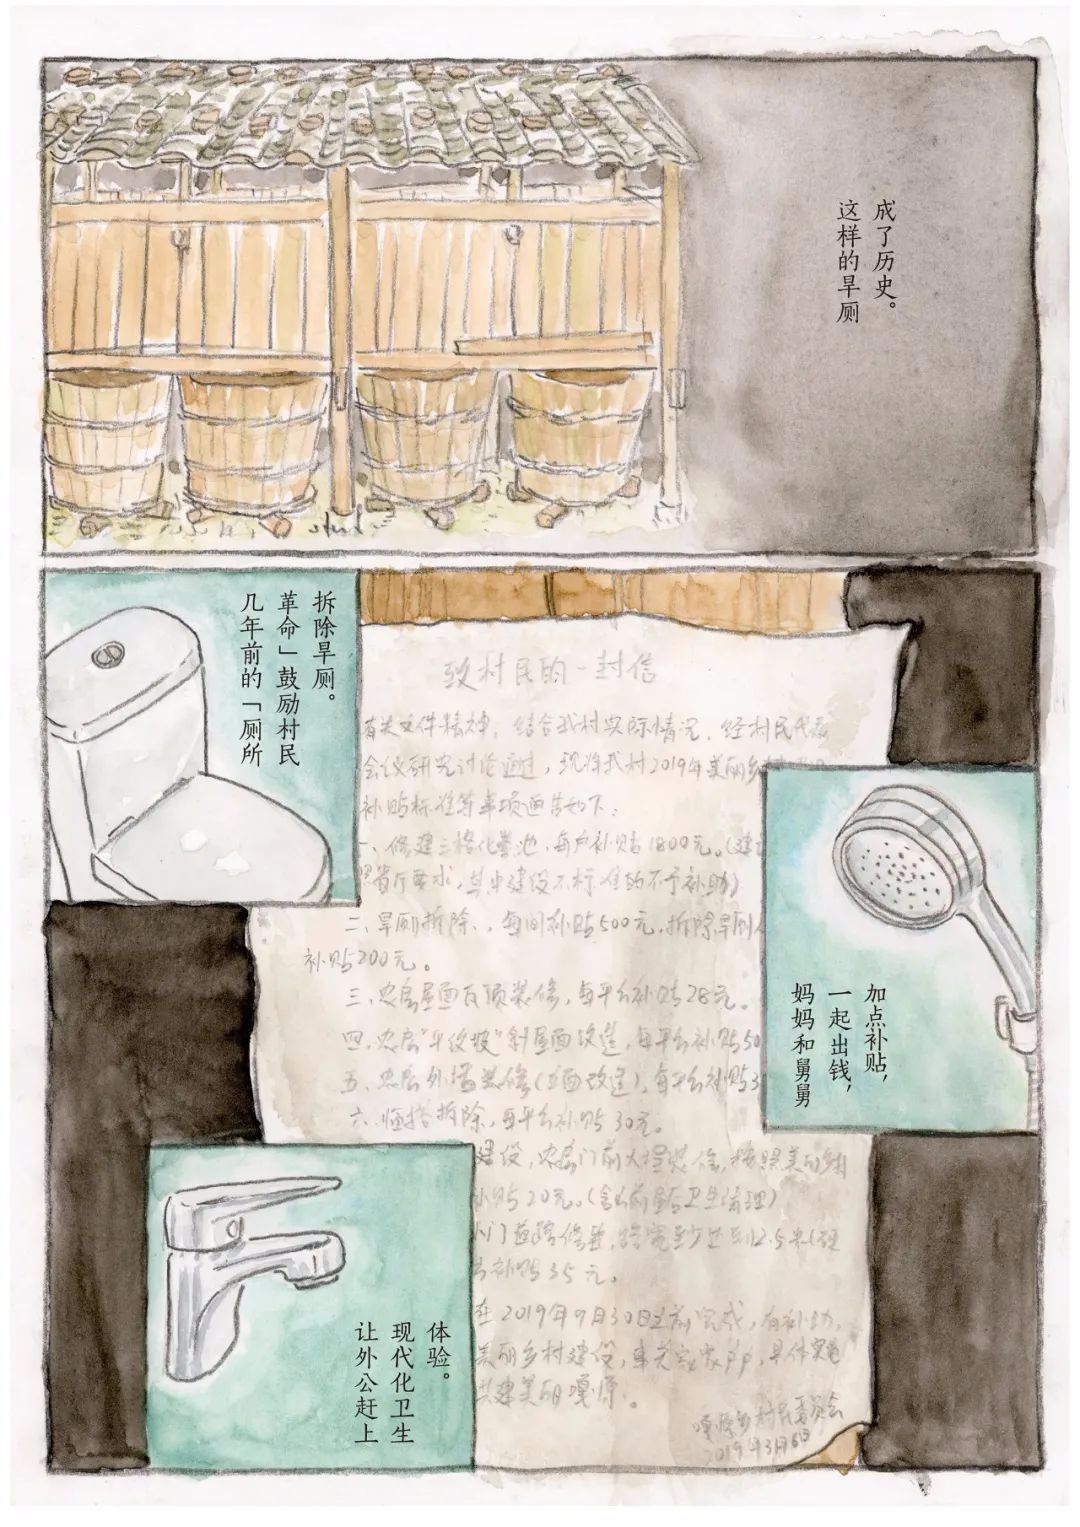 这样的旱厕
成了历史。
几年前的「厕所
革命」鼓励村民
拆除旱厕。
致村民的一封信
有关文件精神，结合我村实际情况，经村民代表
会议研究讨论通过，现将我村2019年美丽乡村
补贴标准等事项通告如下：
一、修建三格化粪池，每户补贴1800元。（建
照省厅要求，其中建设不标准的不予补助）
二、旱厕拆除，每间补贴500元，拆除旱厕
补贴200元。
三、农房屋面瓦顶装修，每平方补贴28元。
四、农房“平改坡”斜屋面改造，每平方补贴50
五、农房外墙装修（立面改造），每平方补贴3
六、临搭拆除，每平方补贴30元。
建设，农房门前火墙装修，按照美丽乡村
补贴20元。（含房前屋后卫生清理）
门道路修整，路宽至少达到2.5米（硬
补贴35元。
在2019年9月30日之前完成，有补助，
美丽乡村建设，事关家家户户，具体实施
共建美丽嘎原。
村民委员会
2019年3月6日
妈妈和舅舅
一起出钱，
加点补贴，
让外公赶上
现代化卫生
体验。